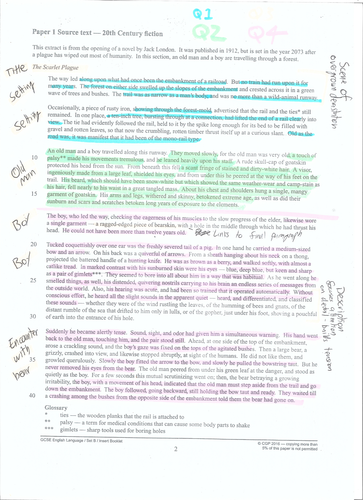 Q1
Q2 Q4
Paper 1 Source text — 20th Century fiction
This extract is from the opening of a novel by Jack London. It was published in 1912, but is set in the year 2073 after
a plague has wiped out most of humanity. In this section, an old man and a boy are travelling through a forest.
The Scarlet Plague
Title
Setting
Setting
Old man
Boy
Boy
The way led along upon what had once been the embankment of a railroad. But no train had run upon it for
many years. The forest on either side swelled up the slopes of the embankment and crested across it in a green
wave of trees and bushes. The trail was as narrow as a man's body, and was no more than a wild-animal runway.
Occasionally, a piece of rusty iron, showing through the forest-mould, advertised that the rail and the ties* still
remained. In one place, a ten-inch tree, bursting through at a connection, had lifted the end of a rail clearly into
view. The tie had evidently followed the rail, held to it by the spike long enough for its bed to be filled with
gravel and rotten leaves, so that now the crumbling, rotten timber thrust itself up at a curious slant. Old as the
road was, it was manifest that it had been of the mono-rail type.
10
An old man and a boy travelled along this runway. They moved slowly, for the old man was very old, a touch of
palsy** made his movements tremulous, and he leaned heavily upon his staff. A rude skull-cap of goatskin
protected his head from the sun. From beneath this fell a scant fringe of stained and dirty-white hair. A visor,
ingeniously made from a large leaf, shielded his eyes, and from under this he peered at the way of his feet on the
trail. His beard, which should have been snow-white but which showed the same weather-wear and camp-stain as
his hair, fell nearly to his waist in a great tangled mass. About his chest and shoulders hung a single, mangy
15
garment of goatskin. His arms and legs, withered and skinny, betokened extreme age, as well as did their
sunburn and scars and scratches betoken long years of exposure to the elements.
The boy, who led the way, checking the eagerness of his muscles to the slow progress of the elder, likewise wore
a single garment — a ragged-edged piece of bearskin, with a hole in the middle through which he had thrust his
head. He could not have been more than twelve years old.
Links to final paragraph
20
Tucked coquettishly over one ear was the freshly severed tail of a pig. In one hand he carried a medium-sized
bow and an arrow. On his back was a quiverful of arrows. From a sheath hanging about his neck on a thong,
projected the battered handle of a hunting knife. He was as brown as a berry, and walked softly, with almost a
catlike tread. In marked contrast with his sunburned skin were his eyes — blue, deep blue, but keen and sharp
as a pair of gimlets***. They seemed to bore into all about him in a way that was habitual. As he went along he
25
smelled things, as well, his distended, quivering nostrils carrying to his brain an endless series of messages from
the outside world. Also, his hearing was acute, and had been so trained that it operated automatically. Without
conscious effort, he heard all the slight sounds in the apparent quiet — heard, and differentiated, and classified
these sounds — whether they were of the wind rustling the leaves, of the humming of bees and gnats, of the
distant rumble of the sea that drifted to him only in lulls, or of the gopher, just under his foot, shoving a pouchful
30
of earth into the entrance of his hole.
Encounter with bear
Suddenly he became alertly tense. Sound, sight, and odor had given him a simultaneous warning. His hand went
back to the old man, touching him, and the pair stood still. Ahead, at one side of the top of the embankment,
arose a crackling sound, and the boy's gaze was fixed on the tops of the agitated bushes. Then a large bear, a
grizzly, crashed into view, and likewise stopped abruptly, at sight of the humans. He did not like them, and
35
growled querulously. Slowly the boy fitted the arrow to the bow, and slowly he pulled the bowstring taut. But he
never removed his eyes from the bear. The old man peered from under his green leaf at the danger, and stood as
quietly as the boy. For a few seconds this mutual scrutinizing went on; then, the bear betraying a growing
irritability, the boy, with a movement of his head, indicated that the old man must step aside from the trail and go
down the embankment. The boy followed, going backward, still holding the bow taut and ready. They waited till
40
a crashing among the bushes from the opposite side of the embankment told them the bear had gone on.
Glossary
* ties — the wooden planks that the rail is attached to
** palsy — a term for medical conditions that can cause some body parts to shake
*** gimlets — sharp tools used for boring holes
GCSE English Language / Set B / Insert Booklet
2
© CGP 2015 — copying more than
5% of this paper is not permitted